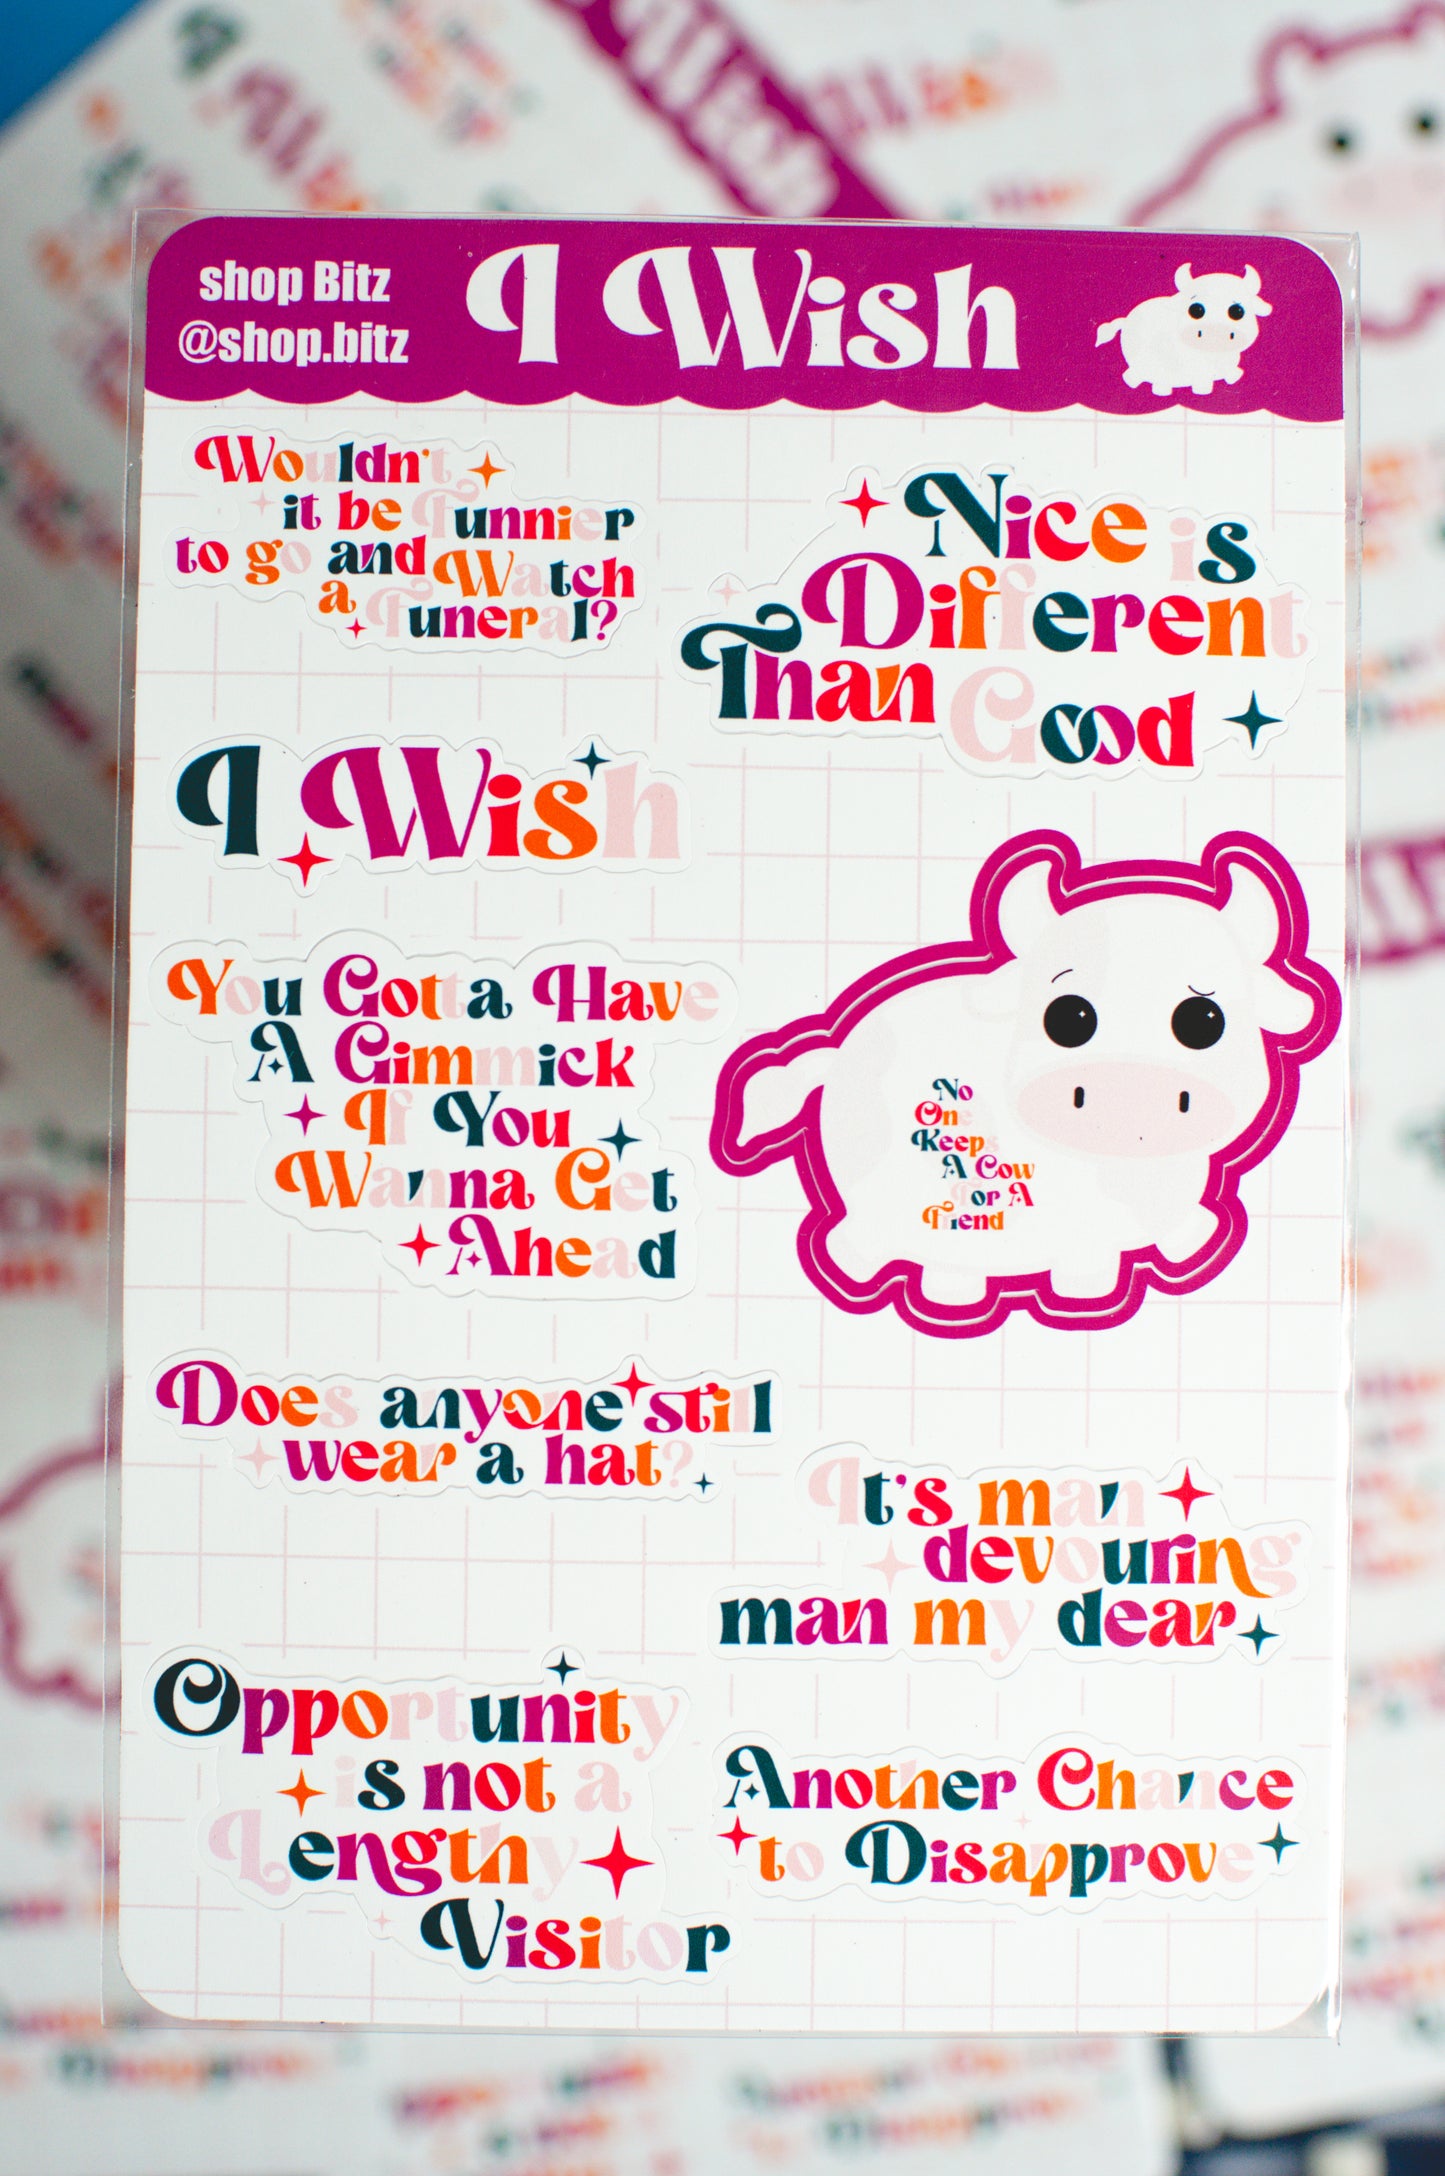 shop Bitz
@shop.bitz
I Wish
Wouldn't
it be Funnier
to go and Watch
a Funeral?
Nice is
Different
Than Good
I Wish
You Gotta Have
A Gimmick
If You
Wanna Get
Ahead
No
One
Keeps
A Cow
For A
Friend
Does anyone still
wear a hat?
It's man
devouring
man my dear
Opportunity
is not a
Lengthy
Visitor
Another Chance
to Disapprove